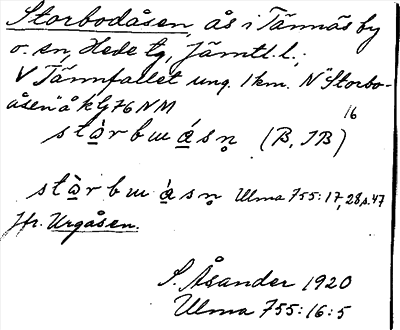 Storbodåsen, ås i Tännäs by
o. en, Hede tg, Jämtl. l.;
V Tännfallet ung. 1 km. N "Storbo-
åsen" å kG 76 NM
stὰrbɯásn̥ (B, JB) 16
stὰrbɯásn̥ Ulma 755:17, 28 s. 47
Jfr. Urgåsen.
S. Åsander 1920
Ulma 755:16:5